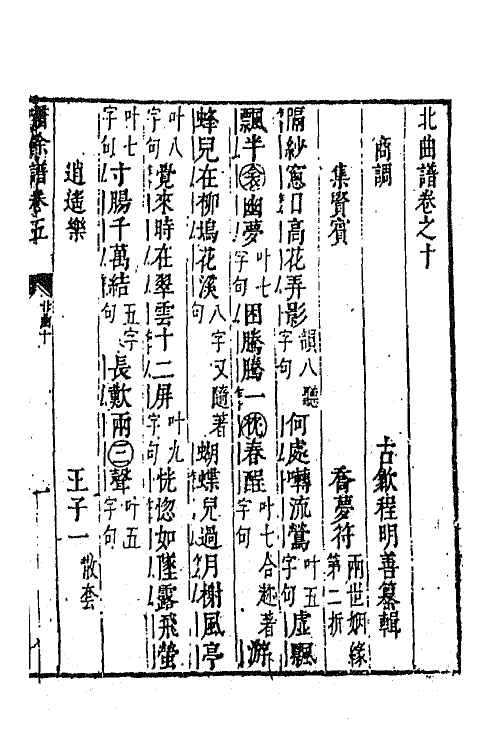 北曲譜卷之十
古歙程明善纂輯
商調
集賢賓 喬夢符 兩世姻緣第二折
隔紗窓日高花弄影 韻八聽字句 何處囀流鶯 叶五字句 虛飄
飄半衾幽夢 叶七字句 困騰騰一枕春酲 叶七字句 合趂著 游
蜂兒在柳塢花溪 八字句 又隨著 蝴蝶兒過月榭風亭
叶八字句 覺來時在翠雲十二屏 叶九字句 恍惚如墜露飛螢
叶七字句 寸腸千萬結 五字句 長歎兩三聲 叶五字句
逍遙樂 王子一 散套
嘯餘譜卷五 北曲十 一